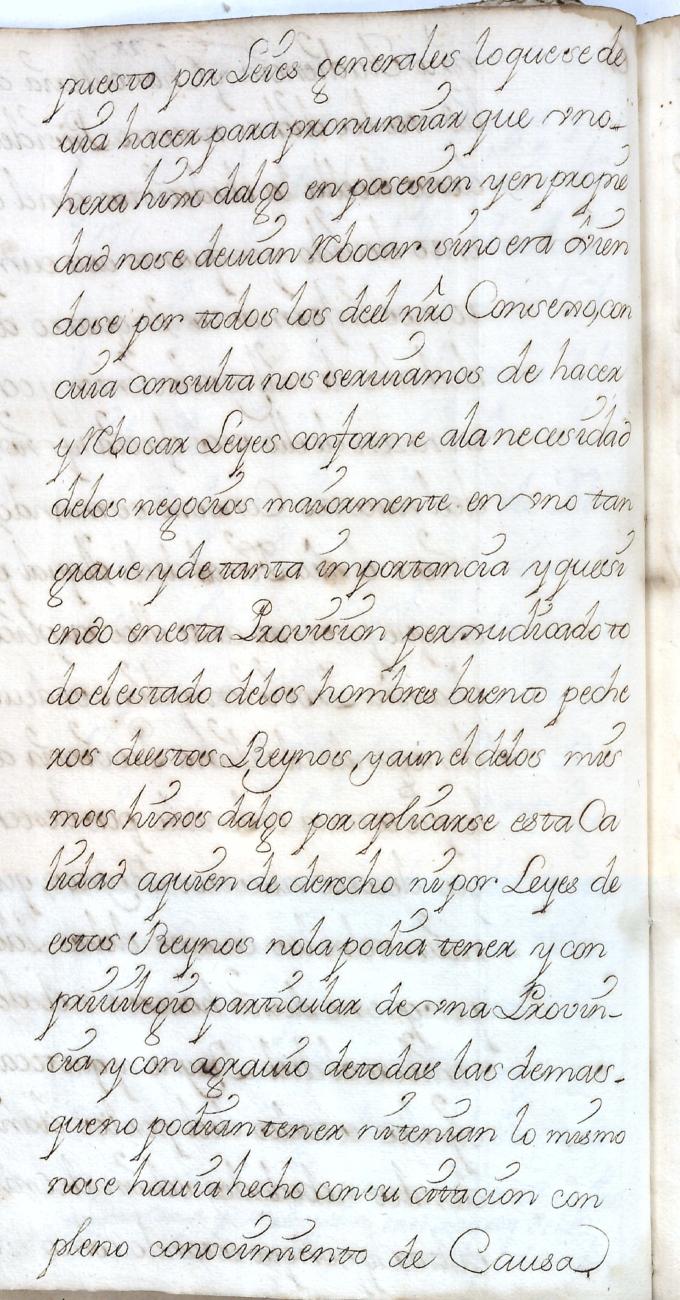 puesto por Leies generales lo que se de
uia hacer para pronunciar que vno
hera hixo dalgo en posesion y en propie
dad no se deuian Rbocar sino era vien
dose por todos los deel nro Consexo, con
cuia consulta nos seruiamos de hacer
y Rbocar Leyes conforme ala necesidad
delos negocios maiormente en vno tan
graue y de tanta importancia y que si
endo en esta Prouision perxudicado to
do el estado delos hombres bueno peche
ros deestos Reynos, y aun el delos mis
mos hixos dalgo por aplicarse esta Ca
lidad aquien de derecho ni por Leyes de
estos Reynos nola podia tener y con
priuilegio particular de vna Prouin-
cia y con agrauio detodas las demas-
queno podian tener ni tenian lo mismo
nose hauia hecho consu citacion con
pleno conocimiento de Causa